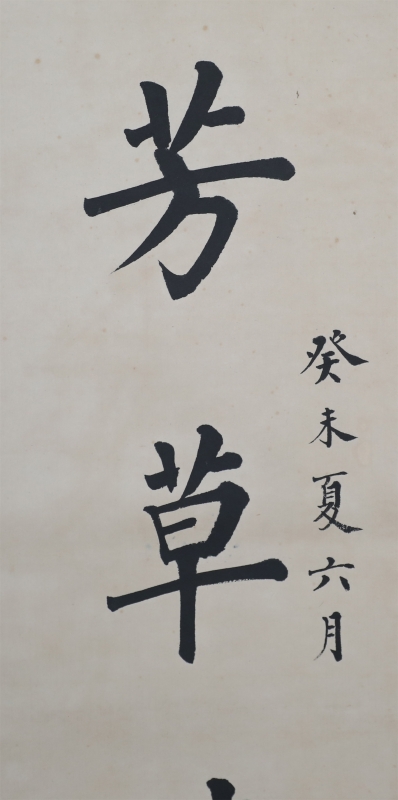 癸未夏六月
芳草